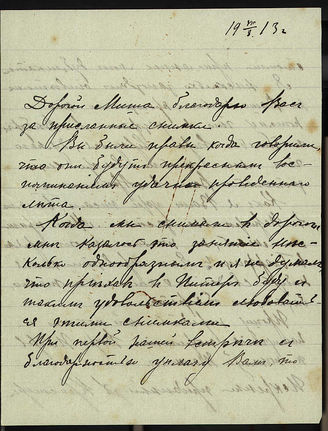 19 VIII/8 13 г
Дорогой Миша благодарю Васъ
за присланные снимки.
Вы были правы когда говорили,
что они будутъ прекраснымъ вос-
поминаніемъ удачно проведеннаго
лѣта.
Когда мы снимали въ дорогѣ
мнѣ казалось что занятіе нѣс-
колько однообразнымъ и я не думала,
что пріѣхавъ въ Питеръ буду съ
такимъ удовольствіемъ любоваться
этими снимками.
При первой нашей встрѣчѣ съ
благодарностью уплачу Вамъ, что